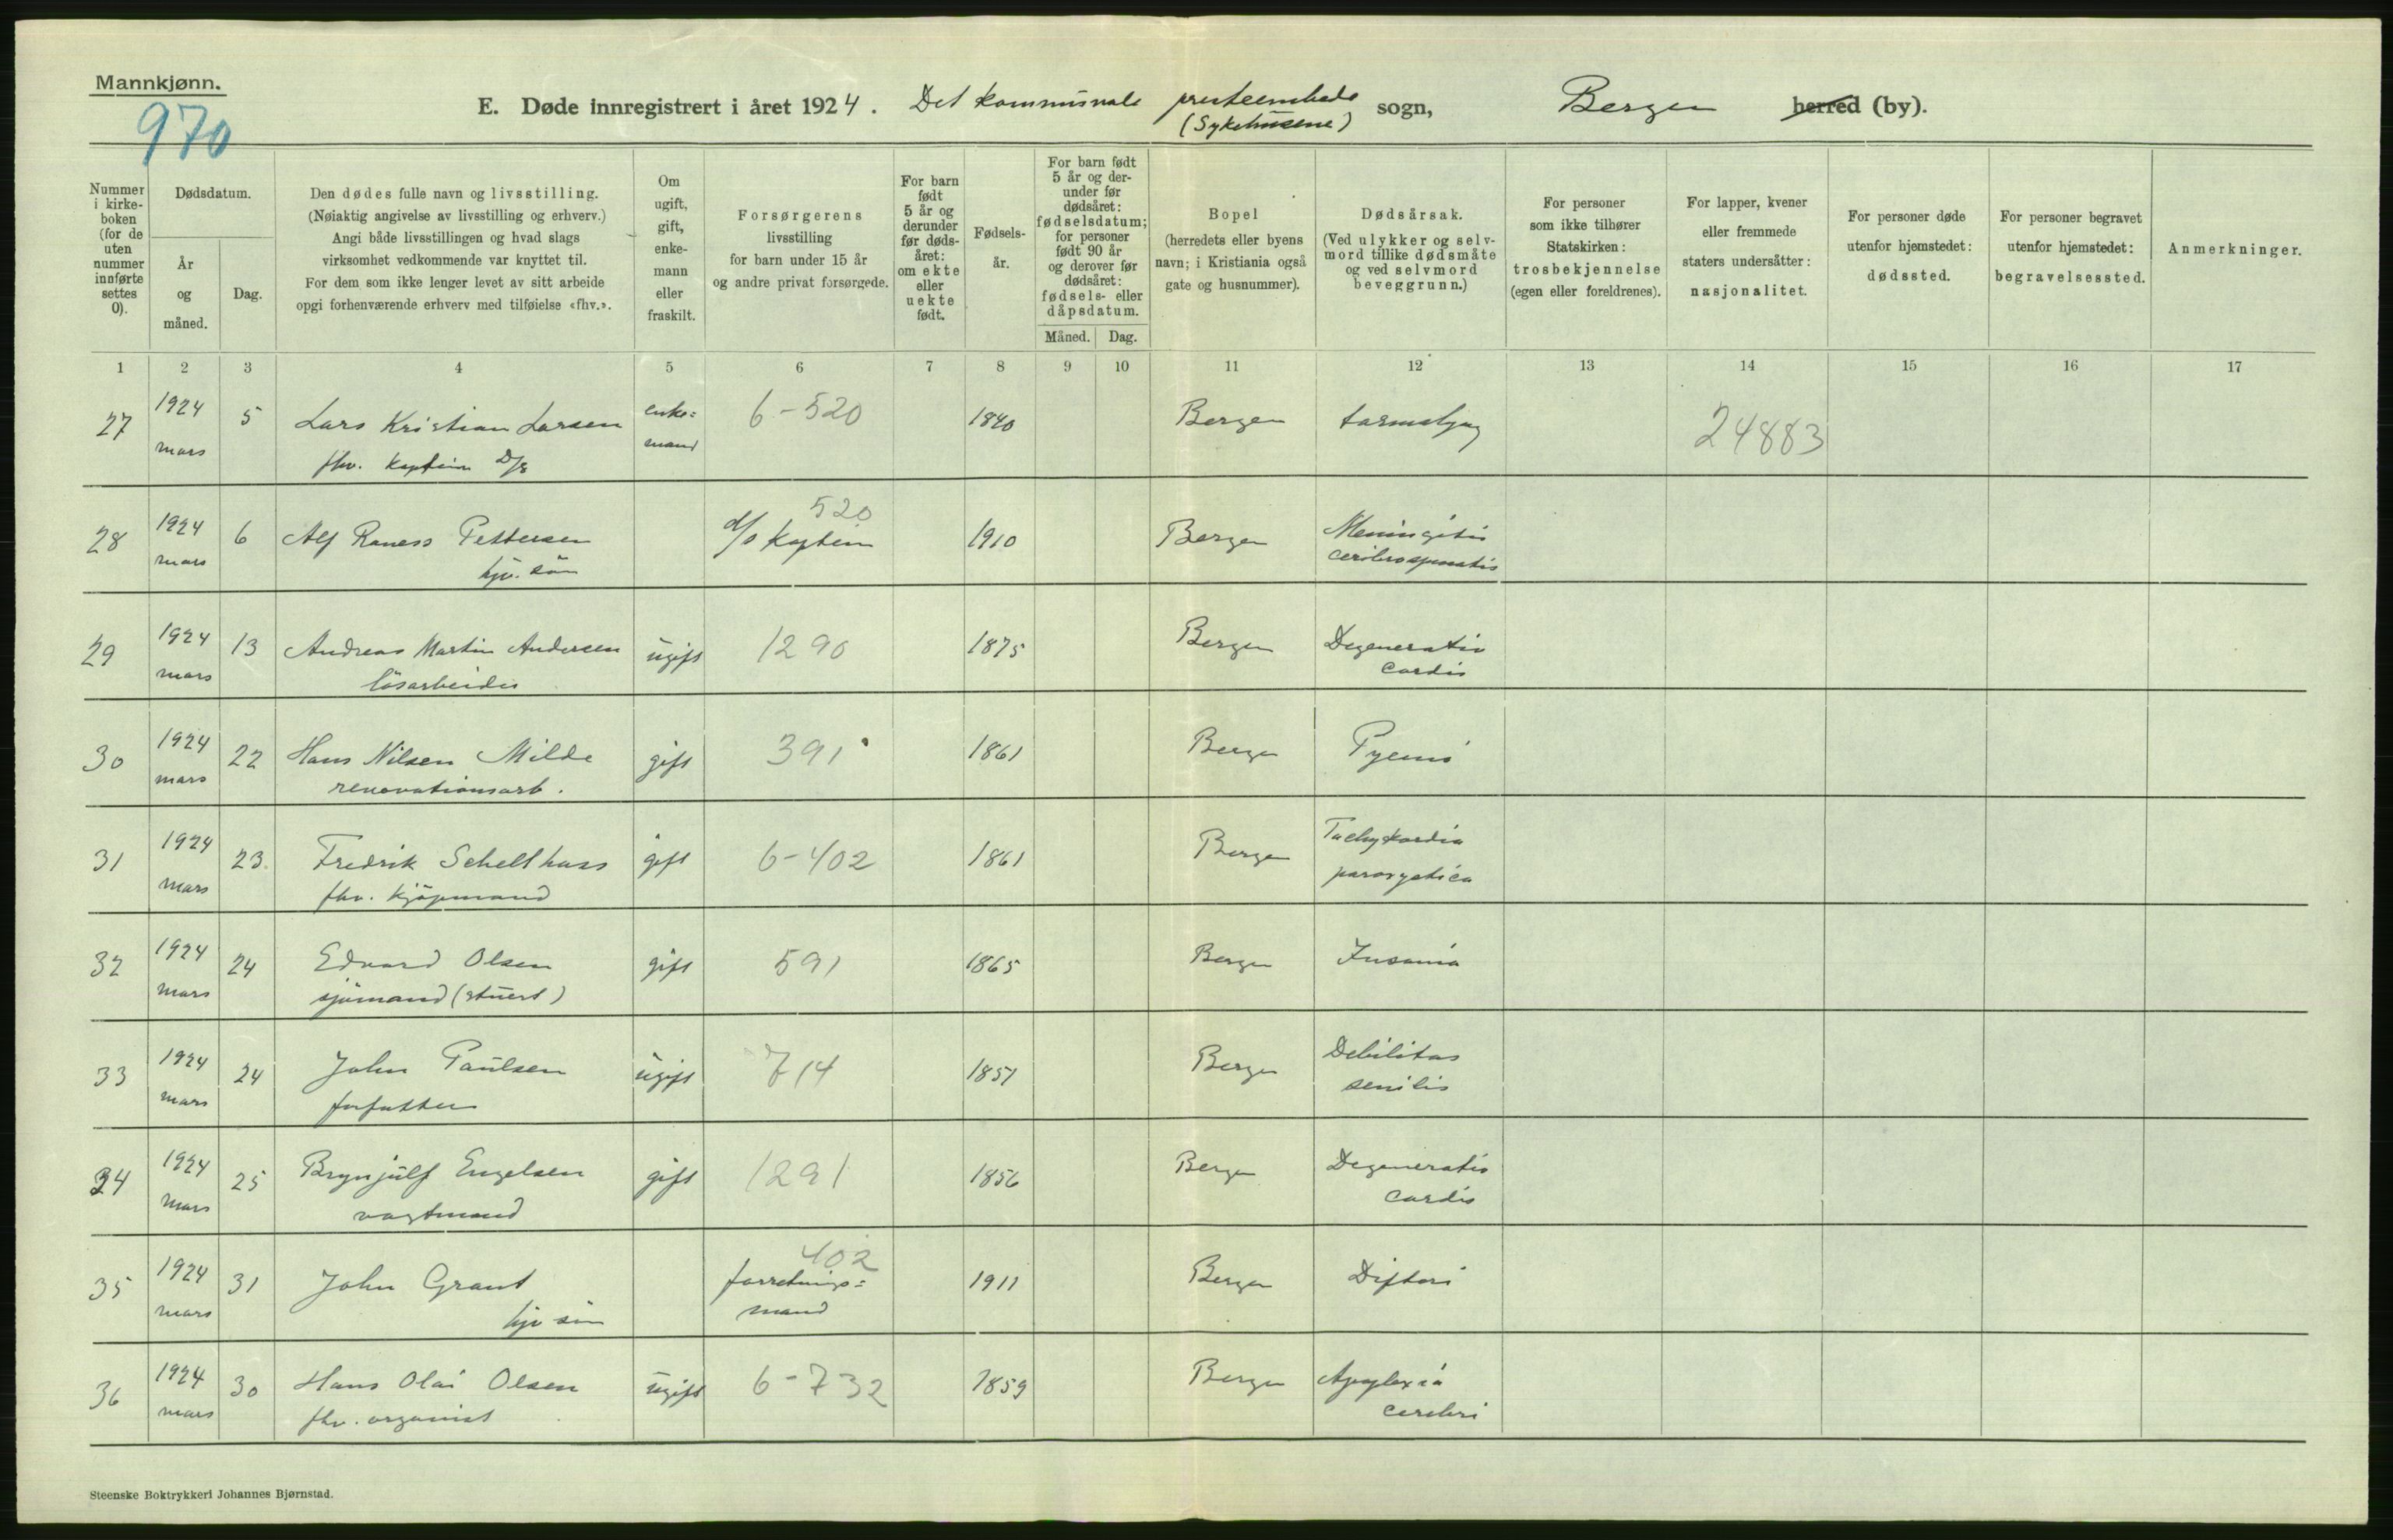 Mannkjønn.
970
E. Døde innregistrert i året 1924. Det kommunale presteembede (Sykehusene) sogn, Bergen herred (by).
Nummer i kirkeboken (for de uten nummer innførte settes 0).
Dødsdatum.
År og måned.
Dag.
Den dødes fulle navn og livsstilling.
(Nøiaktig angivelse av livsstilling og erhverv.)
Angi både livsstillingen og hvad slags
virksomhet vedkommende var knyttet til.
For dem som ikke lenger levet av sitt arbeide
opgi forhenværende erhverv med tilføielse «fhv.».
Om ugift, gift, enkemann eller fraskilt.
Forsørgerens
livsstilling
for barn under 15 år
og andre privat forsørgede.
For barn født 5 år og derunder før dødsåret: om ekte eller uekte født.
Fødselsår.
For barn født 5 år og derunder før dødsåret: fødselsdatum; for personer født 90 år og derover før dødsåret: fødsels- eller dåpsdatum.
Måned. Dag.
Bopel
(herredets eller byens
navn; i Kristiania også
gate og husnummer).
Dødsårsak.
(Ved ulykker og selvmord tillike dødsmåte
og ved selvmord
beveggrunn.)
For personer
som ikke tilhører
Statskirken:
trosbekjennelse
(egen eller foreldrenes).
For lapper, kvener
eller fremmede
staters undersåtter:
nasjonalitet.
For personer døde
utenfor hjemstedet:
dødssted.
For personer begravet
utenfor hjemstedet:
begravelsessted.
Anmerkninger.
1 2 3 4 5 6 7 8 9 10 11 12 13 14 15 16 17
27 1924 mars 5 Lars Kristian Larsen enke= mand 6-520 1840 Bergen tarmslyng 24883
fhv. kaptein D/S
28 1924 mars 6 Alf Raness Pettersen 520 d/s kaptein 1910 Bergen Meningitis cerebrospinalis
hjv. søn
29 1924 mars 13 Andreas Martin Andersen ugift 1290 1875 Bergen Degeneratio cordis
løsarbeider
30 1924 mars 22 Hans Nilsen Milde gift 391 1861 Bergen Pyemi
renovationsarb.
31 1924 mars 23. Fredrik Schelthass gift 6-402 1861 Bergen Tachykardia
fhv. kjøpmand
32 1924 mars 24 Edvard Olsen gift 591 1865 Bergen Insania
sjømand (stuert)
33 1924 mars 24 John Paulsen ugift 714 1851 Bergen Debilitas senilis
forfatter
34 1924 mars 25 Brynjulf Engelsen gift 1291 1856 Bergen Degeneratio cordis
vagtmand
35 1924 mars 31 John Grant 402 forretnings= mand 1911 Bergen Difteri
hjv søn
36 1924 mars 30 Hans Olai Olsen ugift 6-732 1859 Bergen Apoplexia cerebri
fhv. organist
Steenske Boktrykkeri Johannes Bjørnstad.